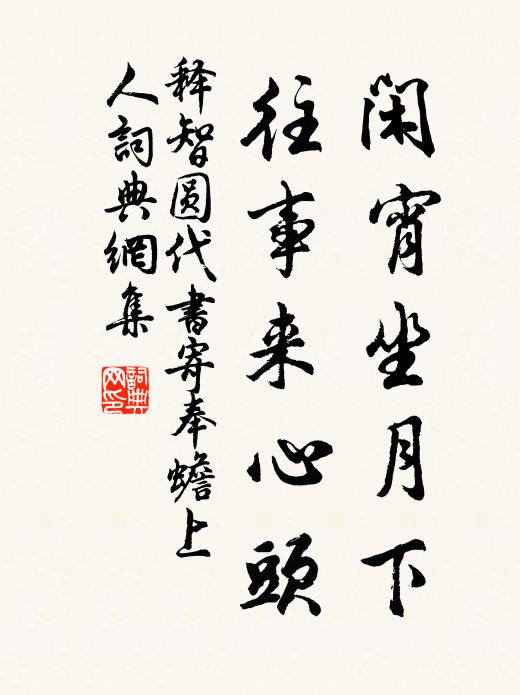 閑宵坐月下
往事来心頭
释智圆代書寄奉蟾上
人詞典網集
詞典
网印